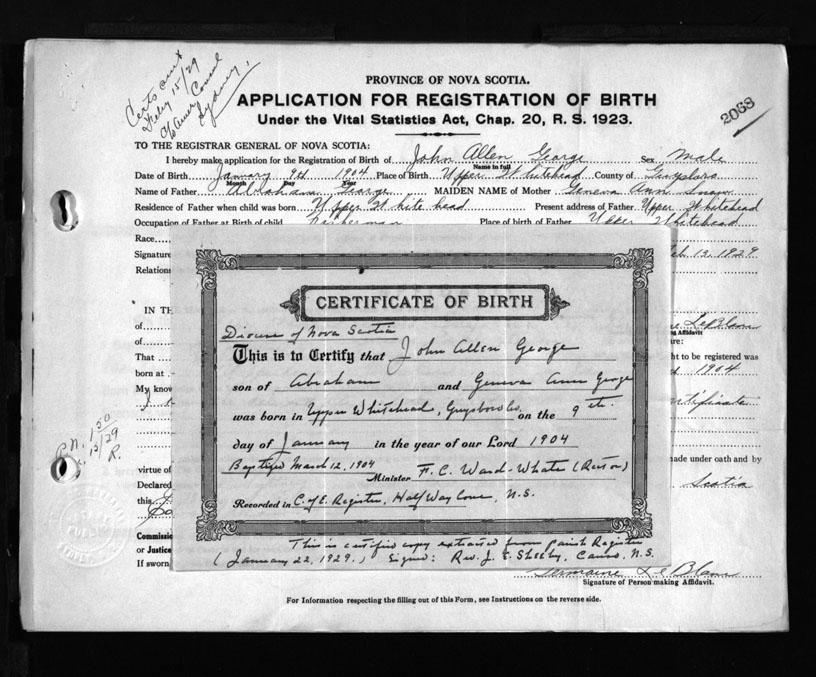 Certs sent
Feby 15/29
Consul
Sydney,
PROVINCE OF NOVA SCOTIA.
APPLICATION FOR REGISTRATION OF BIRTH
Under the Vital Statistics Act, Chap. 20, R. S. 1923.
2068
TO THE REGISTRAR GENERAL OF NOVA SCOTIA:
I hereby make application for the Registration of Birth of John Allen George Sex Male
Name in full
Date of Birth January 9th 1904 Place of Birth Upper Whitehead County of Guysboro
Month Day Year
Name of Father Abraham George MAIDEN NAME of Mother Geneva Ann
Residence of Father when child was born Upper White head Present address of Father Upper Whitehead
Occupation of Father at Birth of child Fisherman Place of birth of Father Upper Whitehead
Race
Signature Feb 13, 1929
Relations
CERTIFICATE OF BIRTH
IN TH
Diocese of Nova Scotia
of LeBlanc
This is to Certify that John Allen George
of
That ght to be registered was
born at son of Abraham and Geneva Ann George 1904
My know
was born in Upper Whitehead, Guysboro Co. on the 9th. certificate
day of January in the year of our Lord 1904
P.N. 1.50
15/29
R.
Baptized March 12, 1904
virtue of made under oath and by
Minister F. C. Ward-Whate (Rector)
Declared Scotia
Recorded in C. of E. Register, Half Way Cove, N.S.
this
Commiss
or Justice
If sworn,
This is certified copy extracted from parish Register
(January 22, 1929.) Signed: Rev. J. E. Canso, N.S.
Germaine LeBlanc
Signature of Person making Affidavit.
For Information respecting the filling out of this Form, see Instructions on the reverse side.